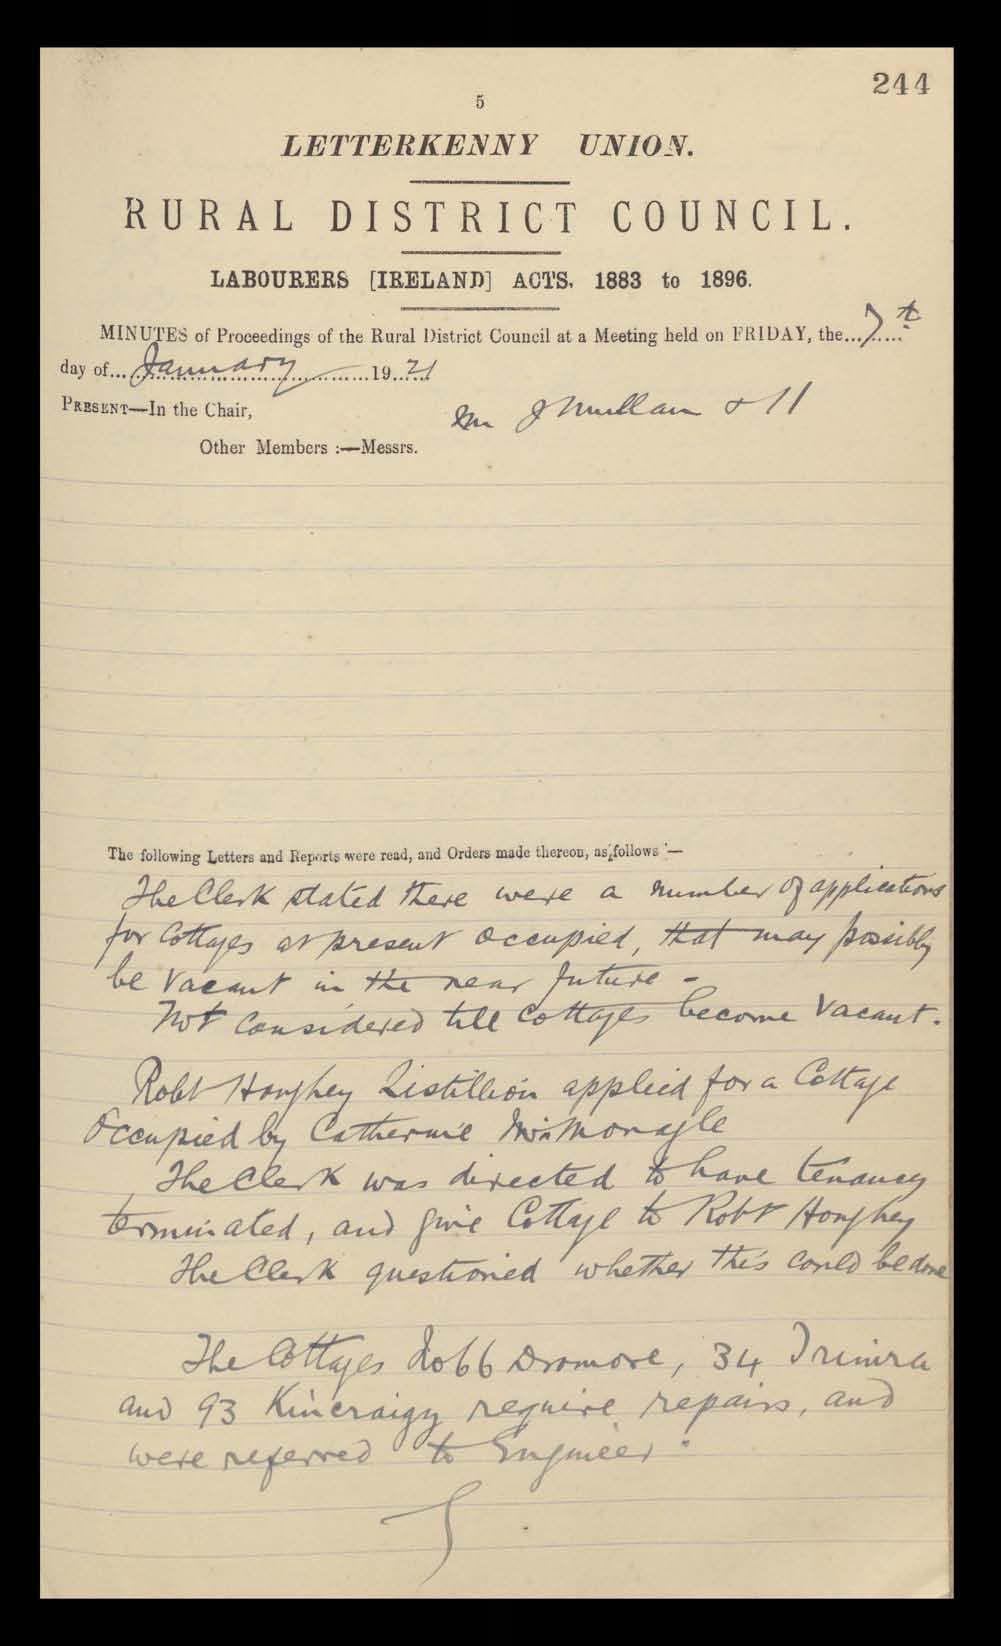 244
5
LETTERKENNY UNION.
RURAL DISTRICT COUNCIL.
LABOURERS [IRELAND] ACTS, 1883 to 1896.
MINUTES of Proceedings of the Rural District Council at a Meeting held on FRIDAY, the...7th...
day of...January...19...21
PRESENT—In the Chair,
Mr J Mullan & 11
Other Members :—Messrs.
The following Letters and Reports were read, and Orders made thereon, as follows :—
The Clerk stated there were a number of applications
for Cottages at present occupied, that may possibly
be vacant in the near future -
Not considered till Cottages become vacant.
Robt Houghey Listillion applied for a Cottage
Occupied by Catherine Monagle
The Clerk was directed to have tenancy
terminated, and give Cottage to Robt Houghey
The Clerk questioned whether this could be done
The Cottages No 66 Dromore, 34 Trimra
and 93 Kincraigy require repairs, and
were referred to Engineer.